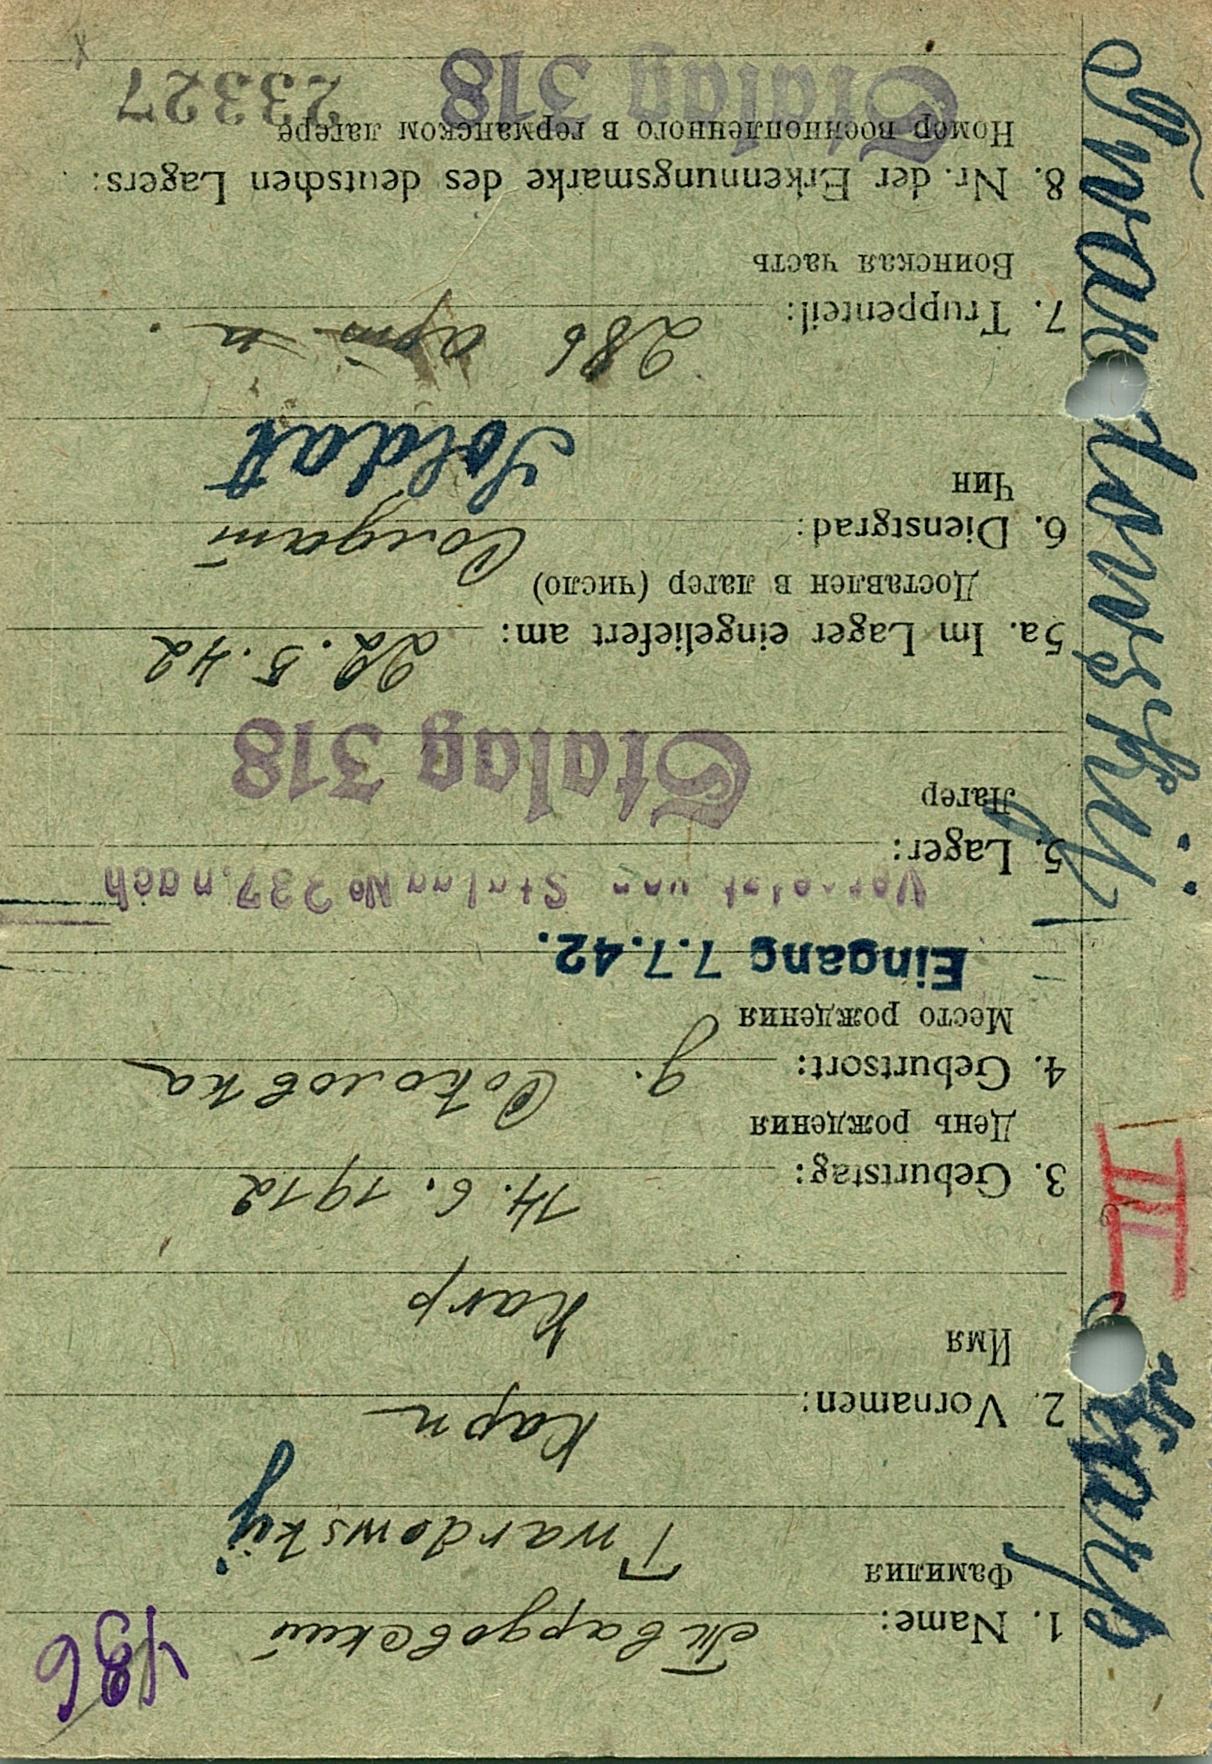 486
1. Name: Твардовский
Фамилия
Twardowskij
2. Vornamen: Карп
Имя
Karp
3. Geburtstag: 14. 6. 1912
День рождения
4. Geburtsort: д. Соколовка
Место рождения
Eingang 7.7.42.
Versetzt von Stalag № 337, nach
5. Lager:
Лагер
Stalag 318
5a. Im Lager eingeliefert am: 22. 5. 42
Доставлен в лагер (число)
6. Dienstgrad: Солдат
Чин
Soldat
7. Truppenteil: 286 арт. п.
Воинская часть
8. Nr. der Erkennungsmarke des deutschen Lagers:
Номер военнопленного в германском лагере
Stalag 318
23327
x
Twardowskij
III
Karp